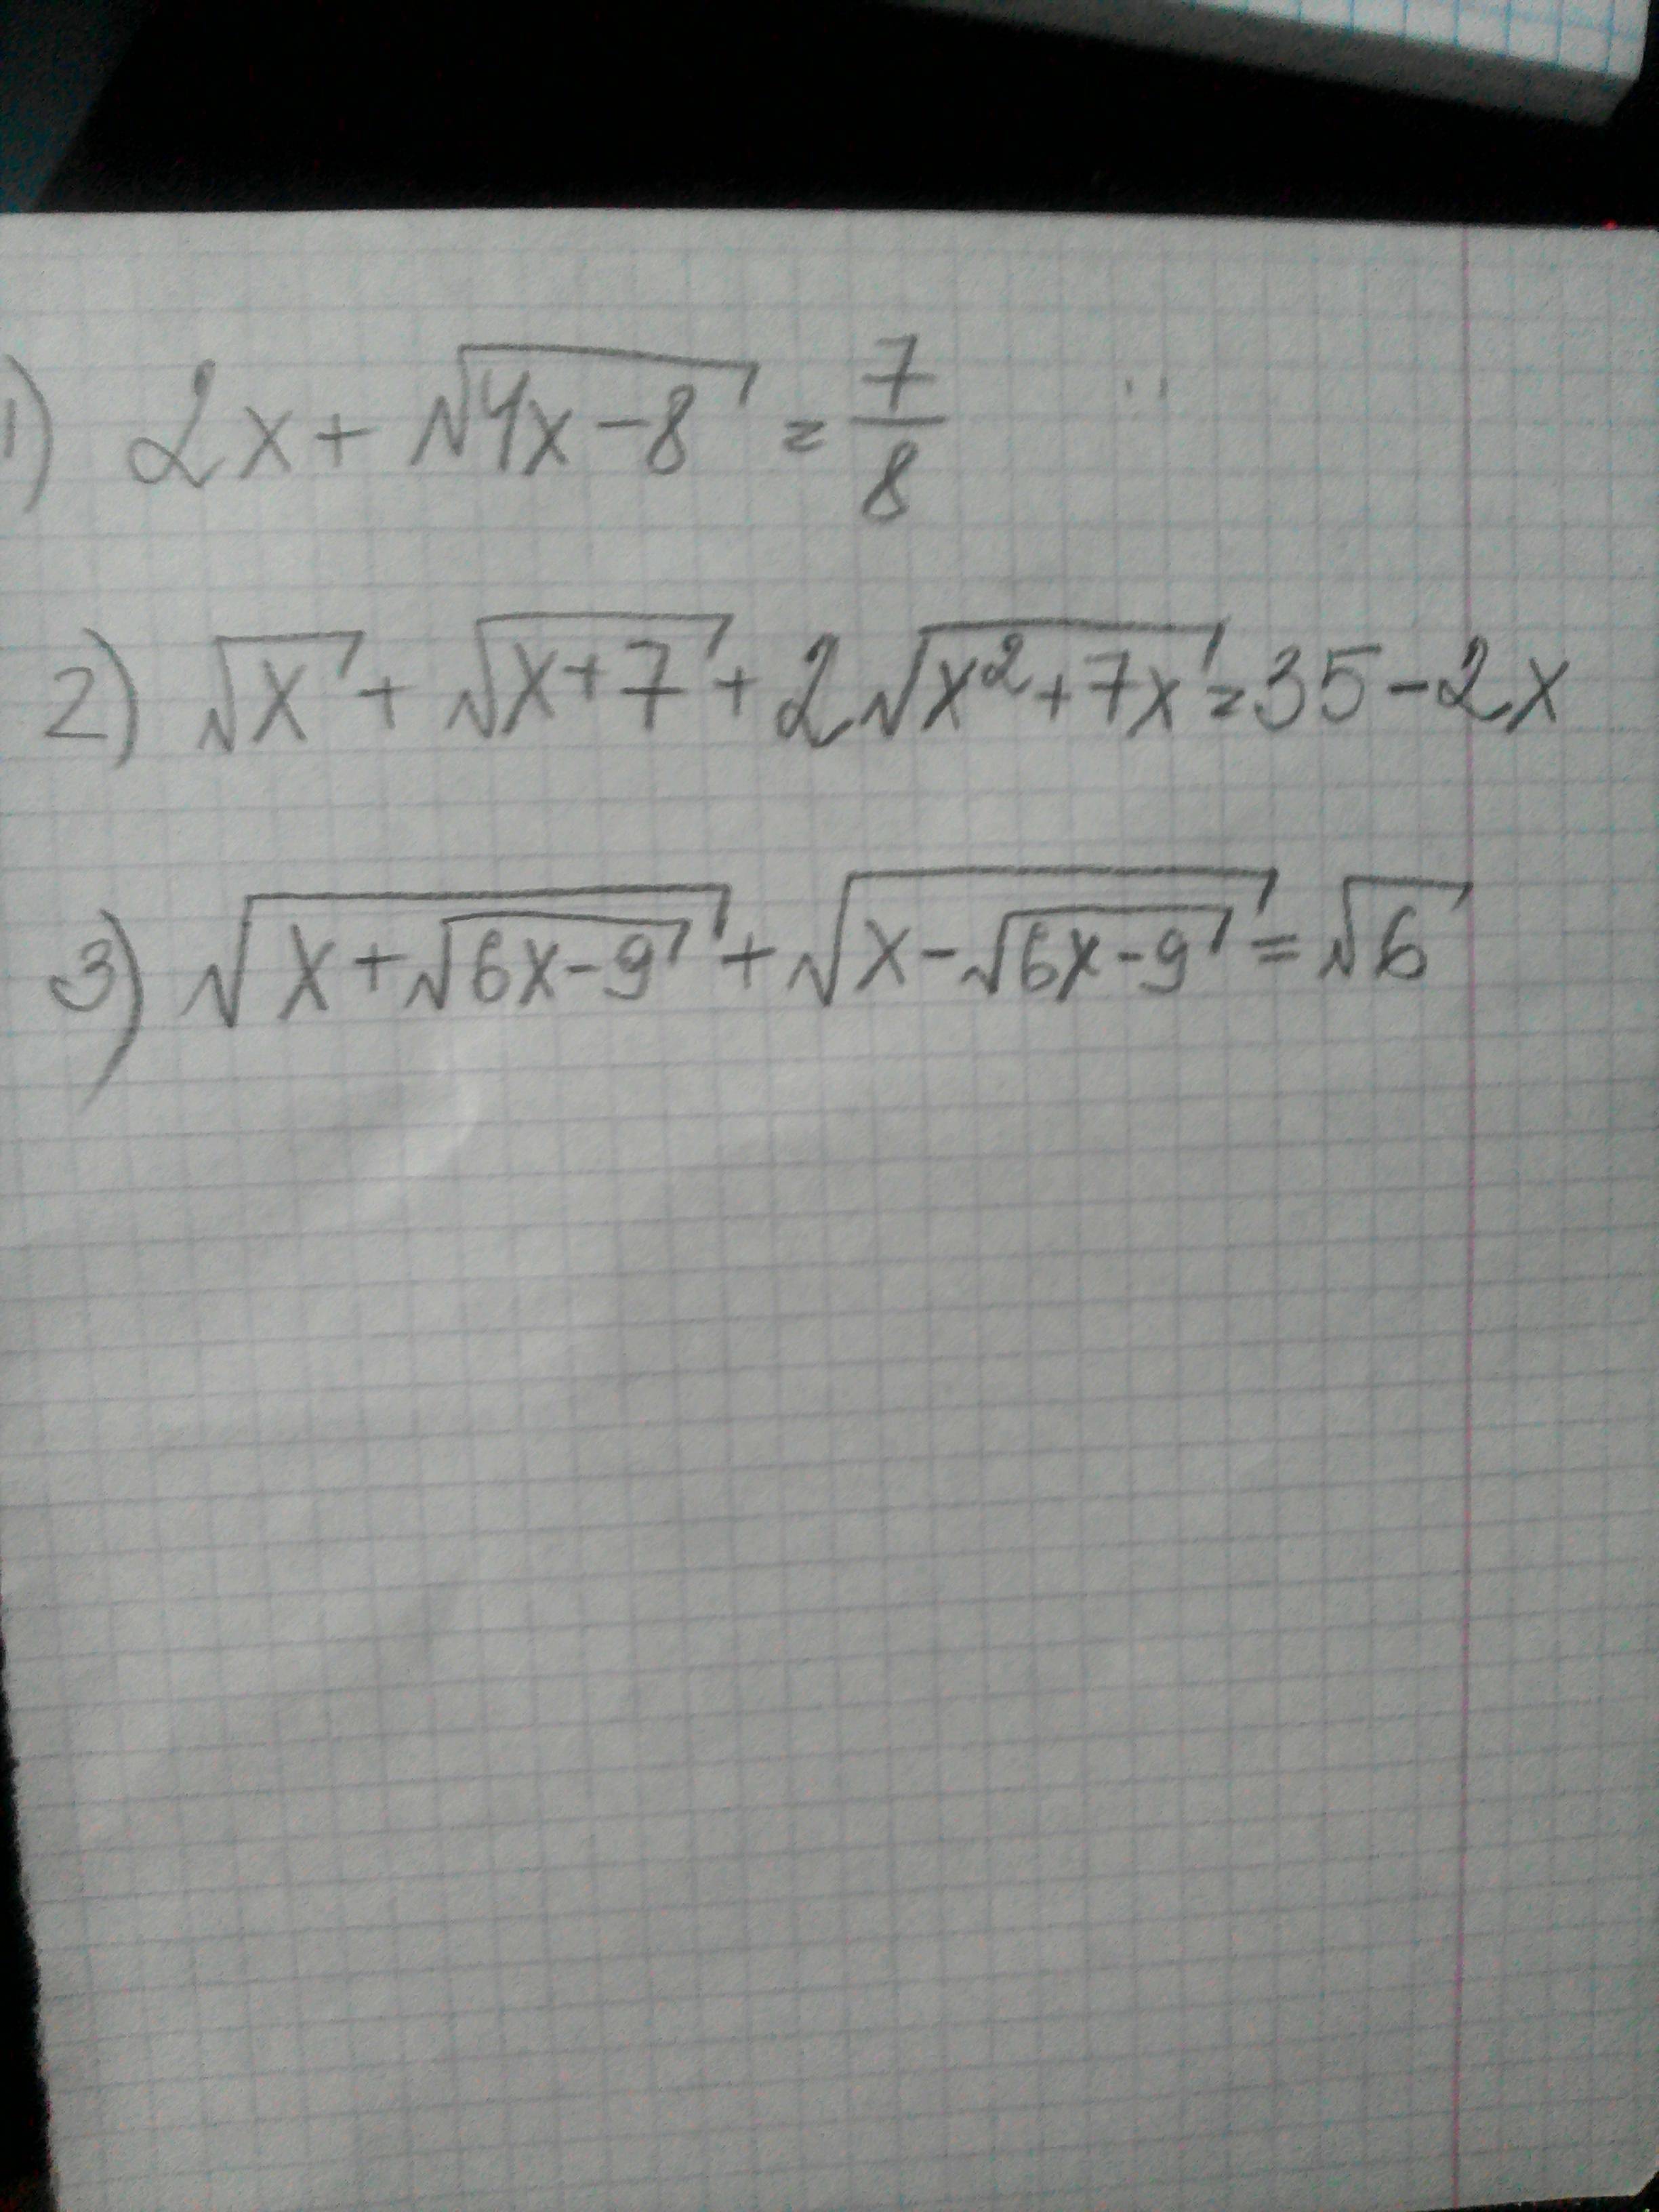 1) 2x + √(4x-8) = 7/8
2) √x + √(x+7) + 2√(x²+7x) = 35-2x
3) √(x+√(6x-9)) + √(x-√(6x-9)) = √6